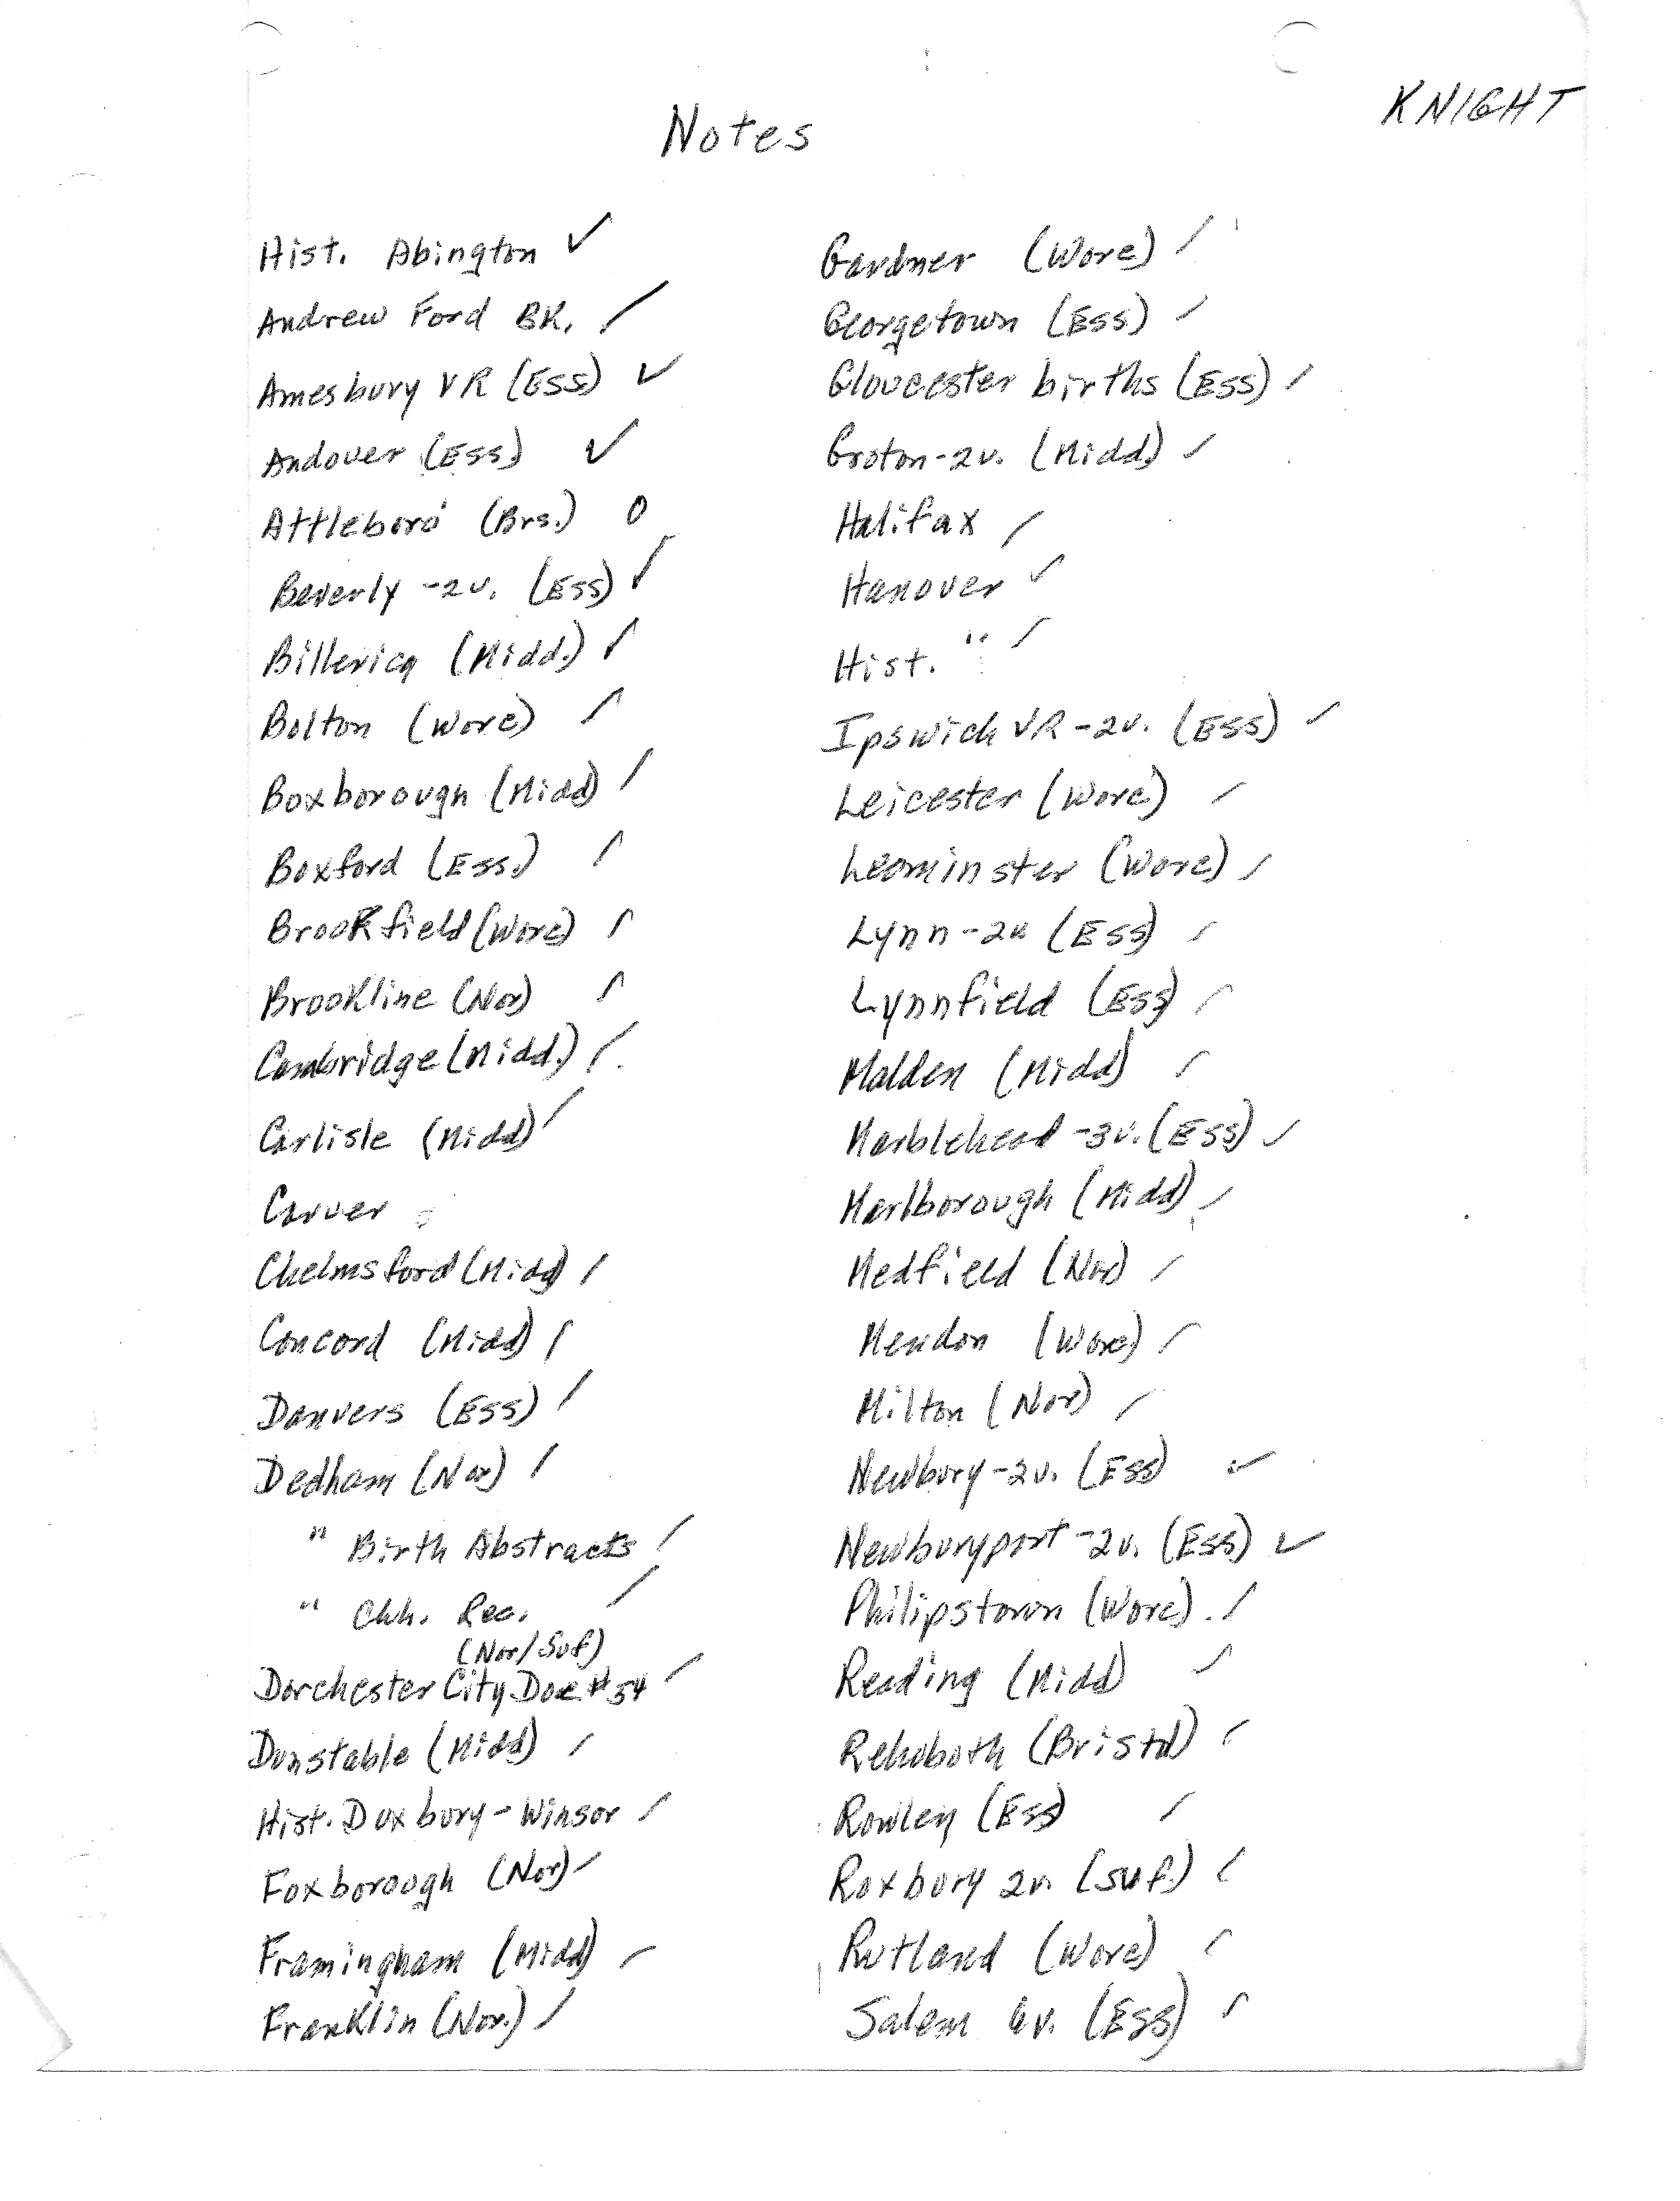 KNIGHT
Notes
Hist. Abington ✓
Andrew Ford BK. /
Amesbury VR (Ess) ✓
Andover (Ess.) ✓
Attleboro' (Brs.) 0
Beverly -2v. (Ess) ✓
Billerica (Midd.) ✓
Bolton (Worc) /
Boxborough (Midd) /
Boxford (Ess.) /
Brookfield (Worc) /
Brookline (Nor) /
Cambridge (Midd.) /
Carlisle (Midd) /
Carver
Chelmsford (Midd) /
Concord (Midd) /
Danvers (Ess) /
Dedham (Nor) /
" Birth Abstracts /
" Chh. Rec. /
(Nor/Suf)
Dorchester City Doc #54 /
Dunstable (Midd) /
Hist. Duxbury - Winsor /
Foxborough (Nor) /
Framingham (Midd) /
Franklin (Nor.) /
Gardner (Worc) /
Georgetown (Ess) /
Gloucester births (Ess) /
Groton-2v. (Midd) ✓
Halifax /
Hanover ✓
Hist. " /
Ipswich VR -2v. (Ess) ✓
Leicester (Worc) /
Leominster (Worc) /
Lynn -2v (Ess) /
Lynnfield (Ess) /
Malden (Midd) /
Marblehead -3v. (Ess) ✓
Marlborough (Midd) /
Medfield (Nor) /
Mendon (Worc) /
Milton (Nor) /
Newbury -2v. (Ess) ✓
Newburyport -2v. (Ess) ✓
Philipstown (Worc). /
Reading (Midd) /
Rehoboth (Bristol) /
Rowley (Ess) /
Roxbury 2v. (Suf.) /
Rutland (Worc) /
Salem 6v. (Ess) /